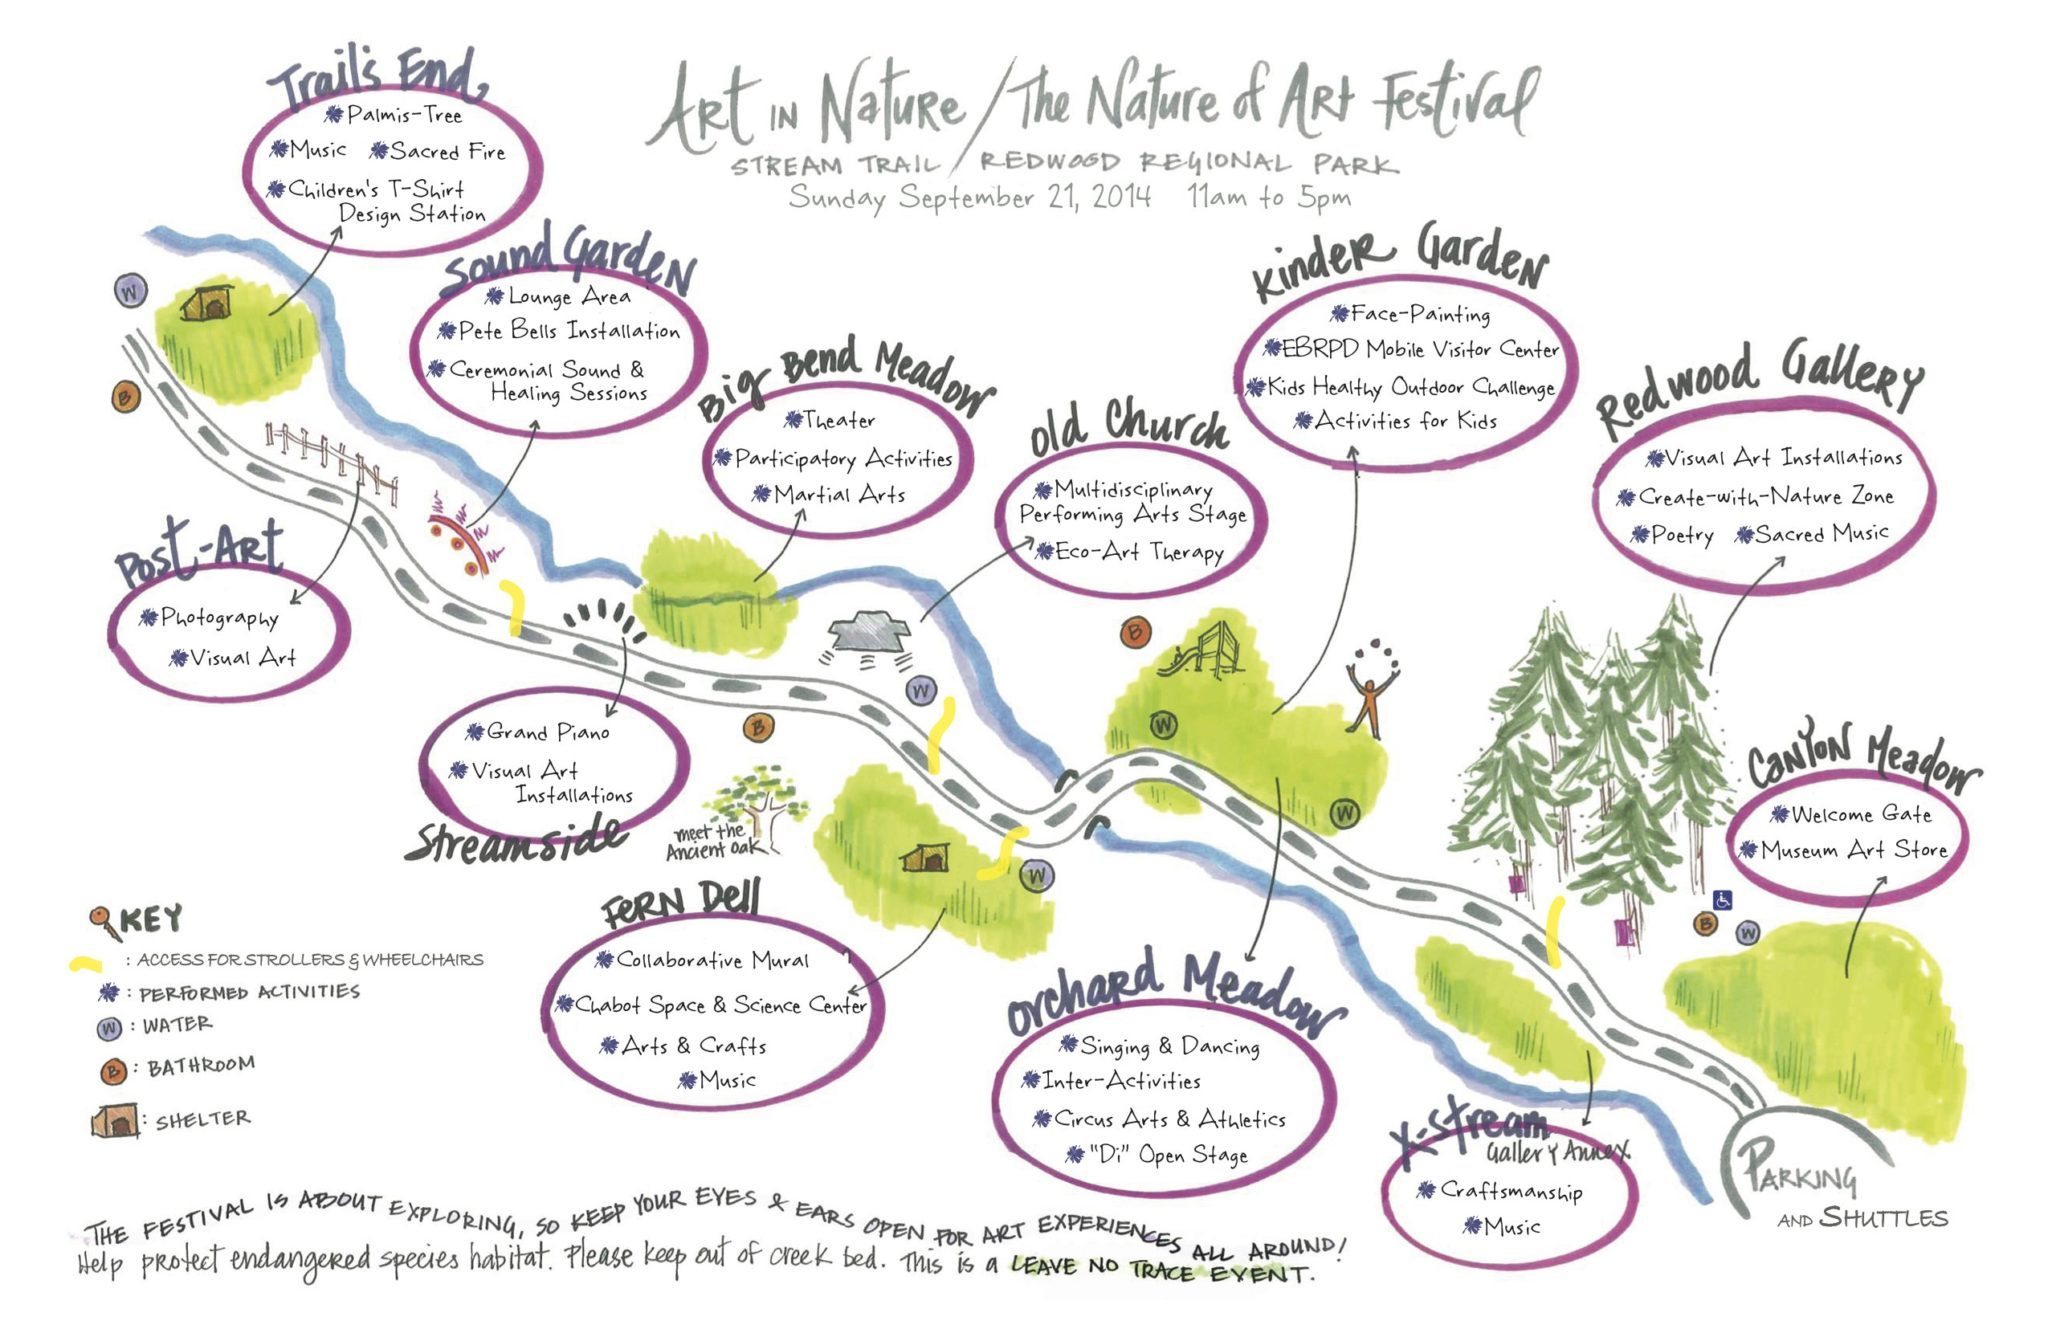 Art in Nature / The Nature of Art Festival
STREAM TRAIL / REDWOOD REGIONAL PARK
Sunday September 21, 2014 11am to 5pm
Trail's End
Palmis-Tree
Music Sacred Fire
Children's T-Shirt
Design Station
Sound Garden
Lounge Area
Pete Bells Installation
Ceremonial Sound &
Healing Sessions
Big Bend Meadow
Theater
Participatory Activities
Martial Arts
Old Church
Multidisciplinary
Performing Arts Stage
Eco-Art Therapy
Kinder Garden
Face-Painting
EBRPD Mobile Visitor Center
Kids Healthy Outdoor Challenge
Activities for Kids
Redwood Gallery
Visual Art Installations
Create-with-Nature Zone
Poetry Sacred Music
Canyon Meadow
Welcome Gate
Museum Art Store
W
B
Post-Art
Photography
Visual Art
Grand Piano
Visual Art
Installations
Streamside
B
W
B
W
W
W
B
W
meet the
Ancient Oak
Fern Dell
Collaborative Mural
Chabot Space & Science Center
Arts & Crafts
Music
Orchard Meadow
Singing & Dancing
Inter-Activities
Circus Arts & Athletics
"Di" Open Stage
X-stream
Gallery Annex
Craftsmanship
Music
PARKING
AND SHUTTLES
KEY
: ACCESS FOR STROLLERS & WHEELCHAIRS
: PERFORMED ACTIVITIES
W : WATER
B : BATHROOM
: SHELTER
THE FESTIVAL IS ABOUT EXPLORING, SO KEEP YOUR EYES & EARS OPEN FOR ART EXPERIENCES ALL AROUND!
Help protect endangered species habitat. Please keep out of creek bed. This is a LEAVE NO TRACE EVENT.